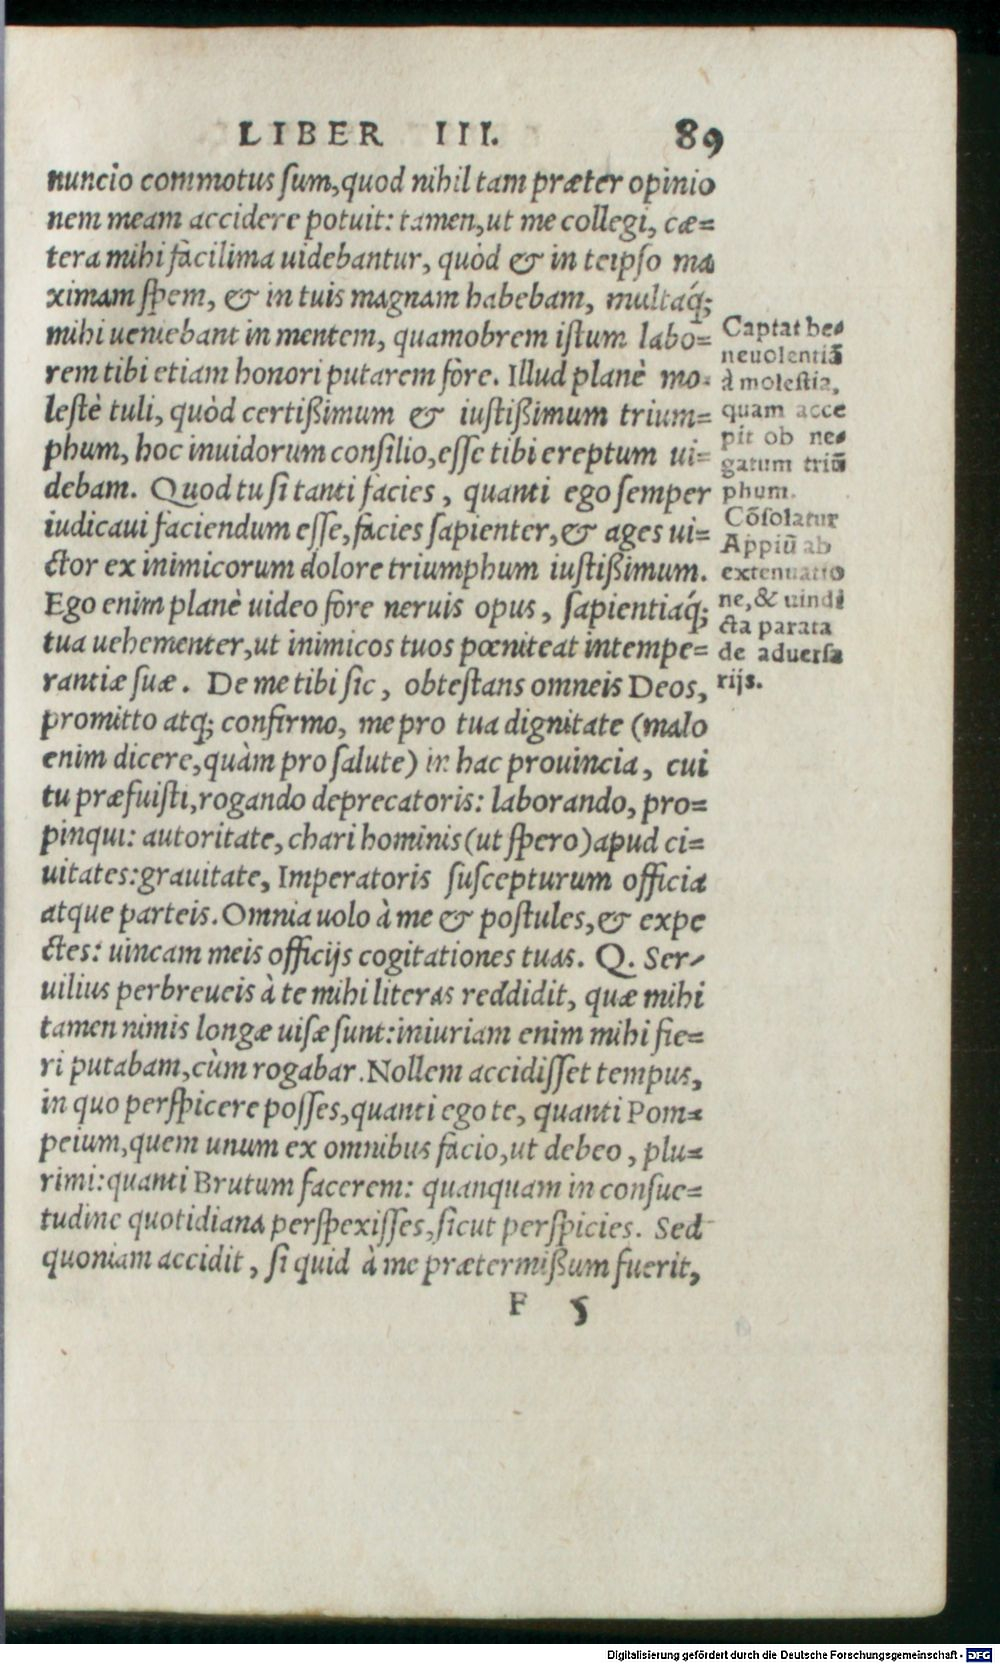 LIBER III. 89
nuncio commotus sum, quod nihil tam præter opinio
nem meam accidere potuit: tamen, ut me collegi, cæ=
tera mihi facilima uidebantur, quòd & in teipso ma
ximam spem, & in tuis magnam habebam, multaq́;
mihi ueniebant in mentem, quamobrem istum labo=
rem tibi etiam honori putarem fore. Illud planè mo-
lestè tuli, quòd certißimum & iustißimum trium=
phum, hoc inuidorum consilio, esse tibi ereptum ui=
debam. Quod tu si tanti facies, quanti ego semper
iudicaui faciendum esse, facies sapienter, & ages ui=
ctor ex inimicorum dolore triumphum iustißimum.
Ego enim planè uideo fore neruis opus, sapientiaq́;
tua uehementer, ut inimicos tuos pœniteat intempe=
rantiæ suæ. De me tibi sic, obtestans omneis Deos,
promitto atq; confirmo, me pro tua dignitate (malo
enim dicere, quàm pro salute) in hac prouincia, cui
tu præfuisti, rogando deprecatoris: laborando, pro=
pinqui: autoritate, chari hominis (ut spero) apud ci=
uitates: grauitate, Imperatoris suscepturum officia
atque parteis. Omnia uolo à me & postules, & expe
ctes: uincam meis officijs cogitationes tuas. Q. Ser-
uilius perbreueis à te mihi literas reddidit, quæ mihi
tamen nimis longæ uisæ sunt: iniuriam enim mihi fie=
ri putabam, cùm rogabar. Nollem accidisset tempus,
in quo perspicere posses, quanti ego te, quanti Pom=
peium, quem unum ex omnibus facio, ut debeo, plu=
rimi: quanti Brutum facerem: quanquam in consue=
tudine quotidiana perspexisses, sicut perspicies. Sed
quoniam accidit, si quid à me prætermißum fuerit,
F 5
Captat be=
neuolentiā
à molestia,
quam acce
pit ob ne=
gatum triū
phum.
Cōsolatur
Appiū ab
extenuatio
ne, & uindi
cta parata
de aduersa
rijs.
Digitalisierung gefördert durch die Deutsche Forschungsgemeinschaft - DFG